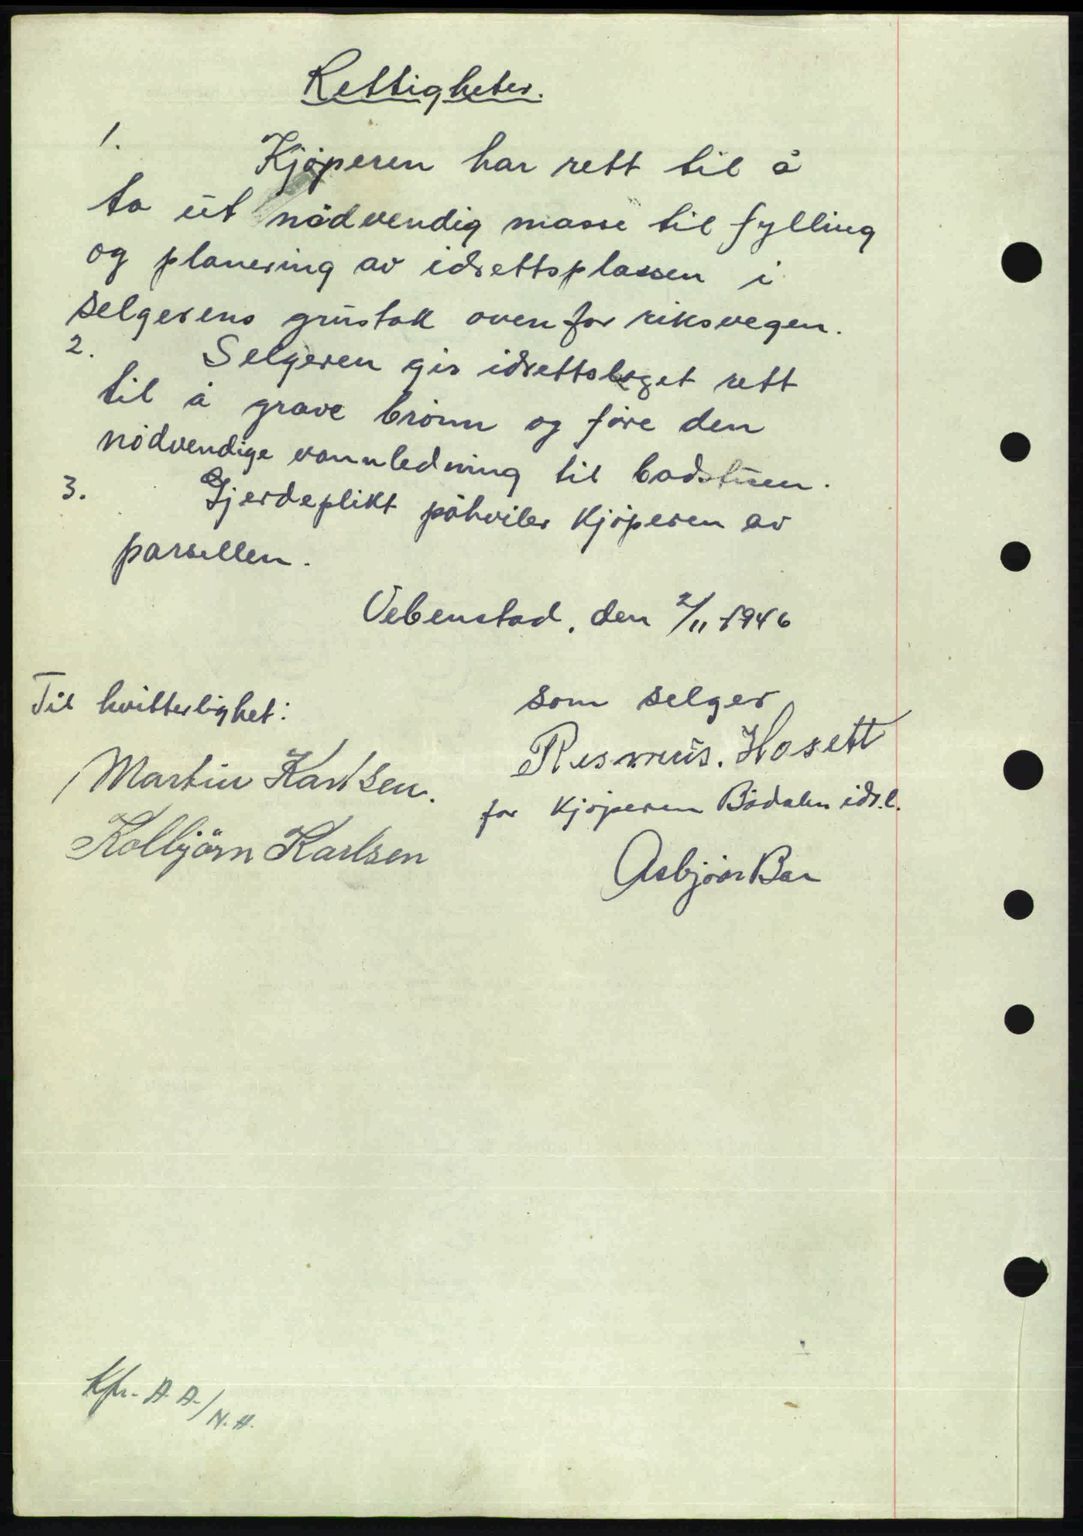 Rettigheter.
1.
Kjøperen har rett til å
ta ut nødvendig masse til fylling
og planering av idrettsplassen i
selgerens grustak ovenfor riksvegen.
2. Selgeren gir idrettslaget rett
til å grave brönn og före den
nödvendige vannledning til badstuen.
3. Gjerdeplikt påhviler kjöperen av
parsellen.
Vebenstad, den 2/11 1946
Til hvitterlighet:
Martin Karlsen.
Kolbjörn Karlsen
som selger
Rasmus. Hosett
for kjöperen Bödalen idr.l.
Asbjörn Bar
Kfr. A.A./N.H.